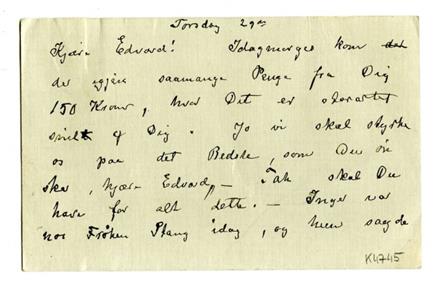 Torsdag 29de
Kjære Edvard! Idagmorges kom
der igjen saamange Penge fra Dig
150 Kroner, hvor Det er storartet
snilt af Dig. Jo vi skal styrke
os paa det Bedste, som Du øn
sker, kjære Edvard, – Tak skal Du
have for alt dette. – Inger var
hos Frøken Stang idag, og hun sagde
K4745